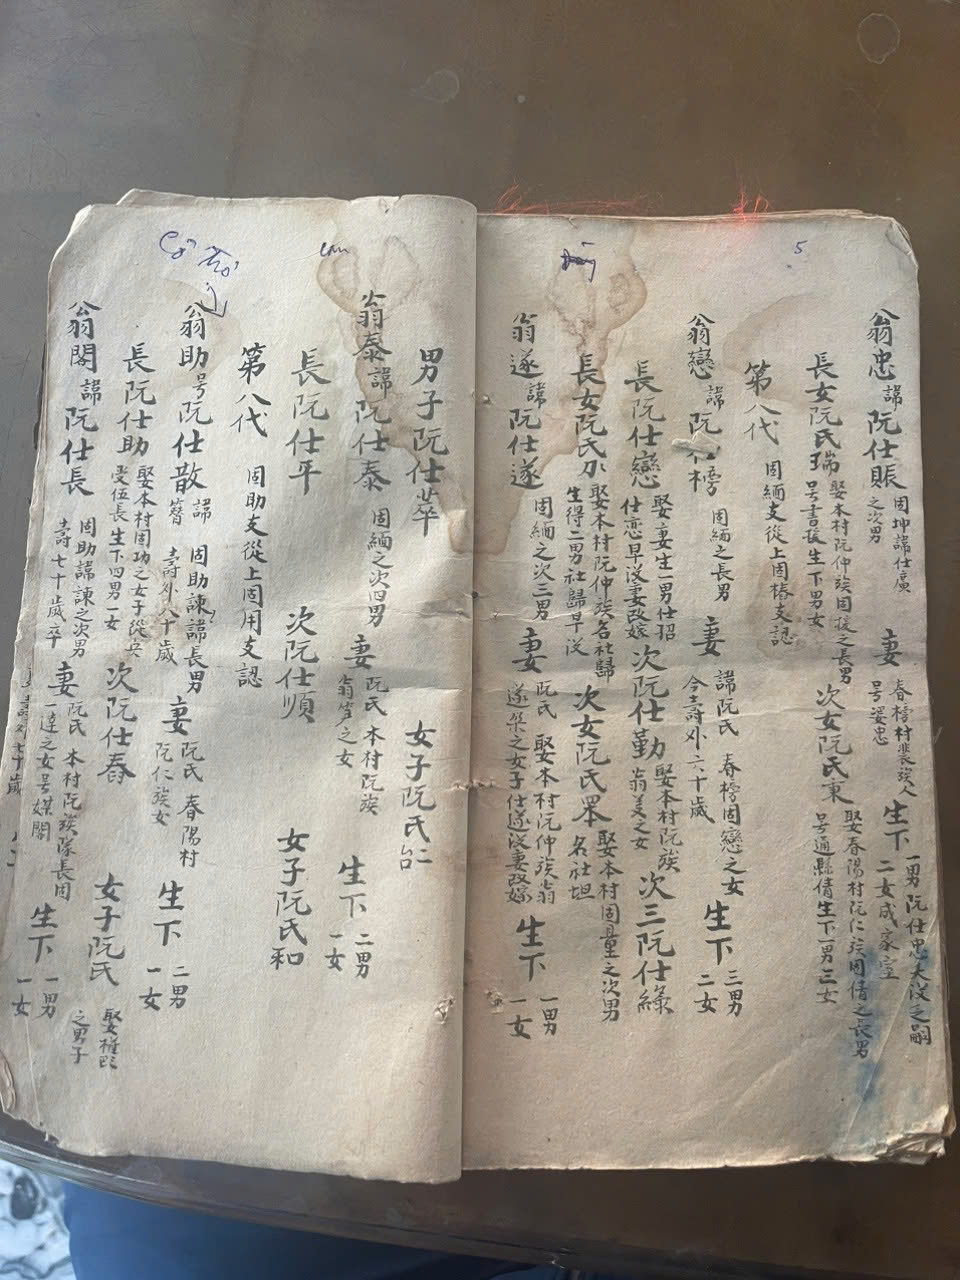 5
翁忠諱阮仕賬 固坤諱仕廣之次男 妻 春榜村裴族人号婆忠 生下 一男阮仕忠大没乏嗣 二女成家室
長女阮氏瑞 娶本村阮仲族固援之長男号書援生下男女 次女阮氏東 娶春陽村阮仁族固倩之長男号通縣倩生下一男三女
第八代 固緬支從上固椿支認
翁戀諱阮 榜 固緬之長男 妻 諱阮氏 春榜固戀之女今壽外六十歲 生下 三男二女
長阮仕戀 娶妻生一男仕招仕恋早没妻改嫁 次阮仕勤 娶本村阮族翁美之女 次三阮仕緣
長女阮氏 娶本村阮仲族名社歸生得二男社歸早没 次女阮氏罘 娶本村固量之次男名社坦
翁遂諱阮仕遂 固緬之次三男 妻 阮氏 娶本村阮仲族翁遂 之女子仕遂没妻改嫁 生下 一男一女
男子阮仕萃 女子阮氏仁
翁泰諱阮仕泰 固緬之次四男 妻 阮氏 本村阮族翁 之女 生下 二男一女
長阮仕平 次阮仕順 女子阮氏和
第八代 固助支從上固用支認
Cố Trợ
翁助号阮仕散 諱簪 固助諫諱長男壽外八十歲 妻 阮氏 春陽村阮仁族女 生下 二男一女
長阮仕助 娶本村固功之女子從英受伍長生下四男一女 次阮仕春 女子阮氏 娶 之男子
翁閣諱阮仕長 固助諱諫之次男壽七十歲卒 妻 阮氏 本村阮族隊長固一達之女号媒閣 生下 一男一女
壽外七十歲